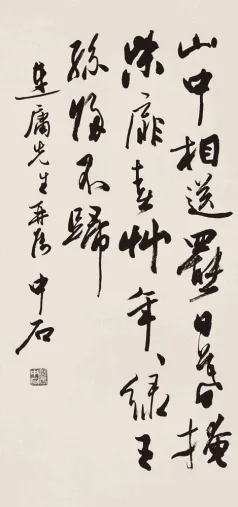 山中相送罷日暮掩
柴扉春艸年〻綠王
孫歸不歸
庸先生 中石